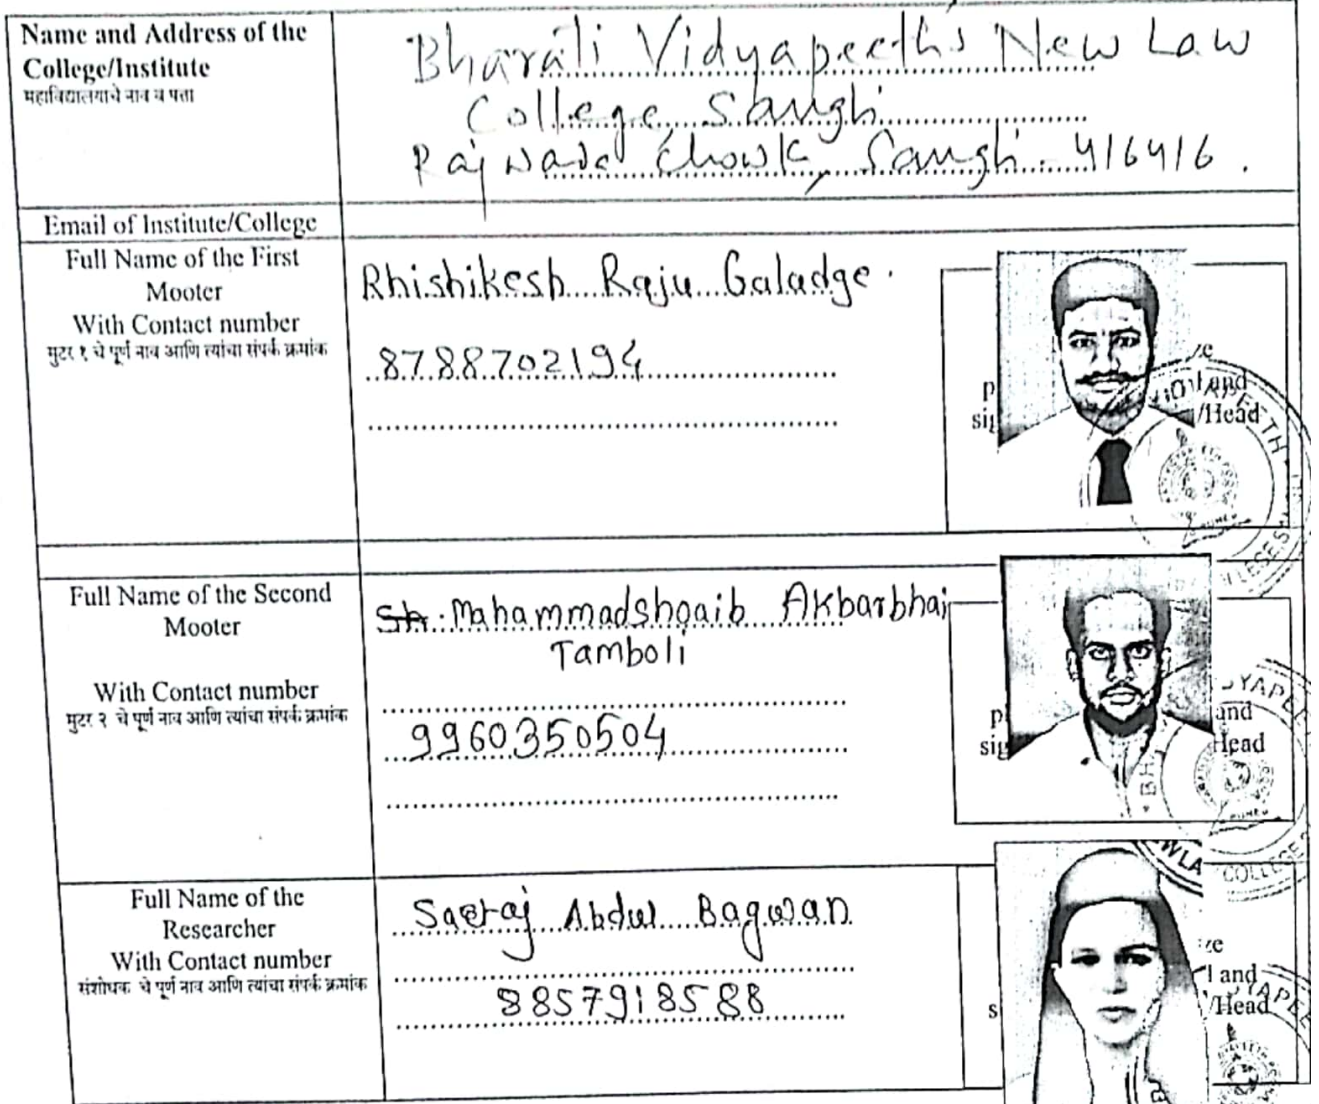 Name and Address of the
College/Institute
महाविद्यालयाचे नाव व पत्ता
Bharati Vidyapeeth's New Law
College, Sangli
Rajwade Chowk, Sangli. 416416.
Email of Institute/College
Full Name of the First
Mooter
With Contact number
मुटर १ चे पूर्ण नाव आणि त्यांचा संपर्क क्रमांक
Rhishikesh Raju Galadge.
8788702194
ze
and
/Head
Full Name of the Second
Mooter
With Contact number
मुटर २ चे पूर्ण नाव आणि त्यांचा संपर्क क्रमांक
Mahammadshoaib Akbarbhai
Tamboli
9960350504
and
Head
Full Name of the
Researcher
With Contact number
संशोधक चे पूर्ण नाव आणि त्यांचा संपर्क क्रमांक
Sartaj Abdul Bagwan
8857918588
ze
and
/Head